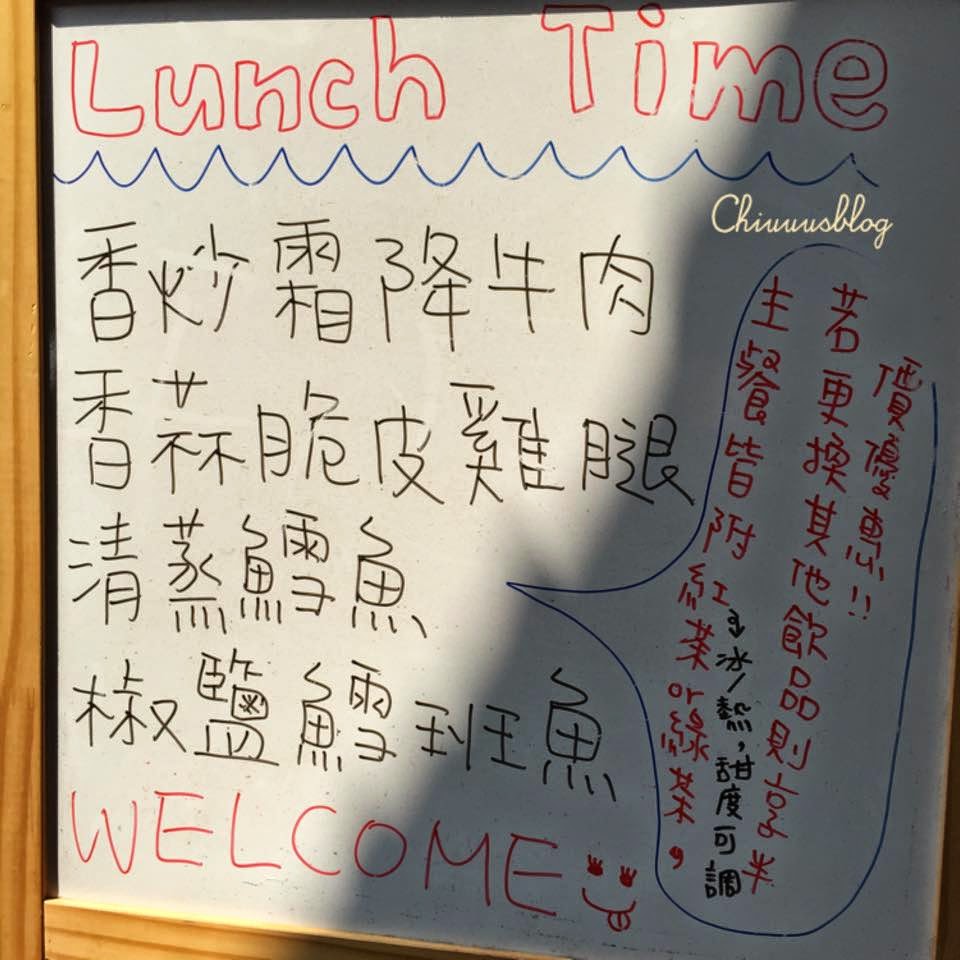 Lunch Time
Chiuuusblog
香炒霜降牛肉
香蒜脆皮雞腿
清蒸鱈魚
椒鹽鱈班魚
WELCOME
主餐皆附紅茶or綠茶，
冰/熱，甜度可調
若更換其他飲品則享半
價優惠!!